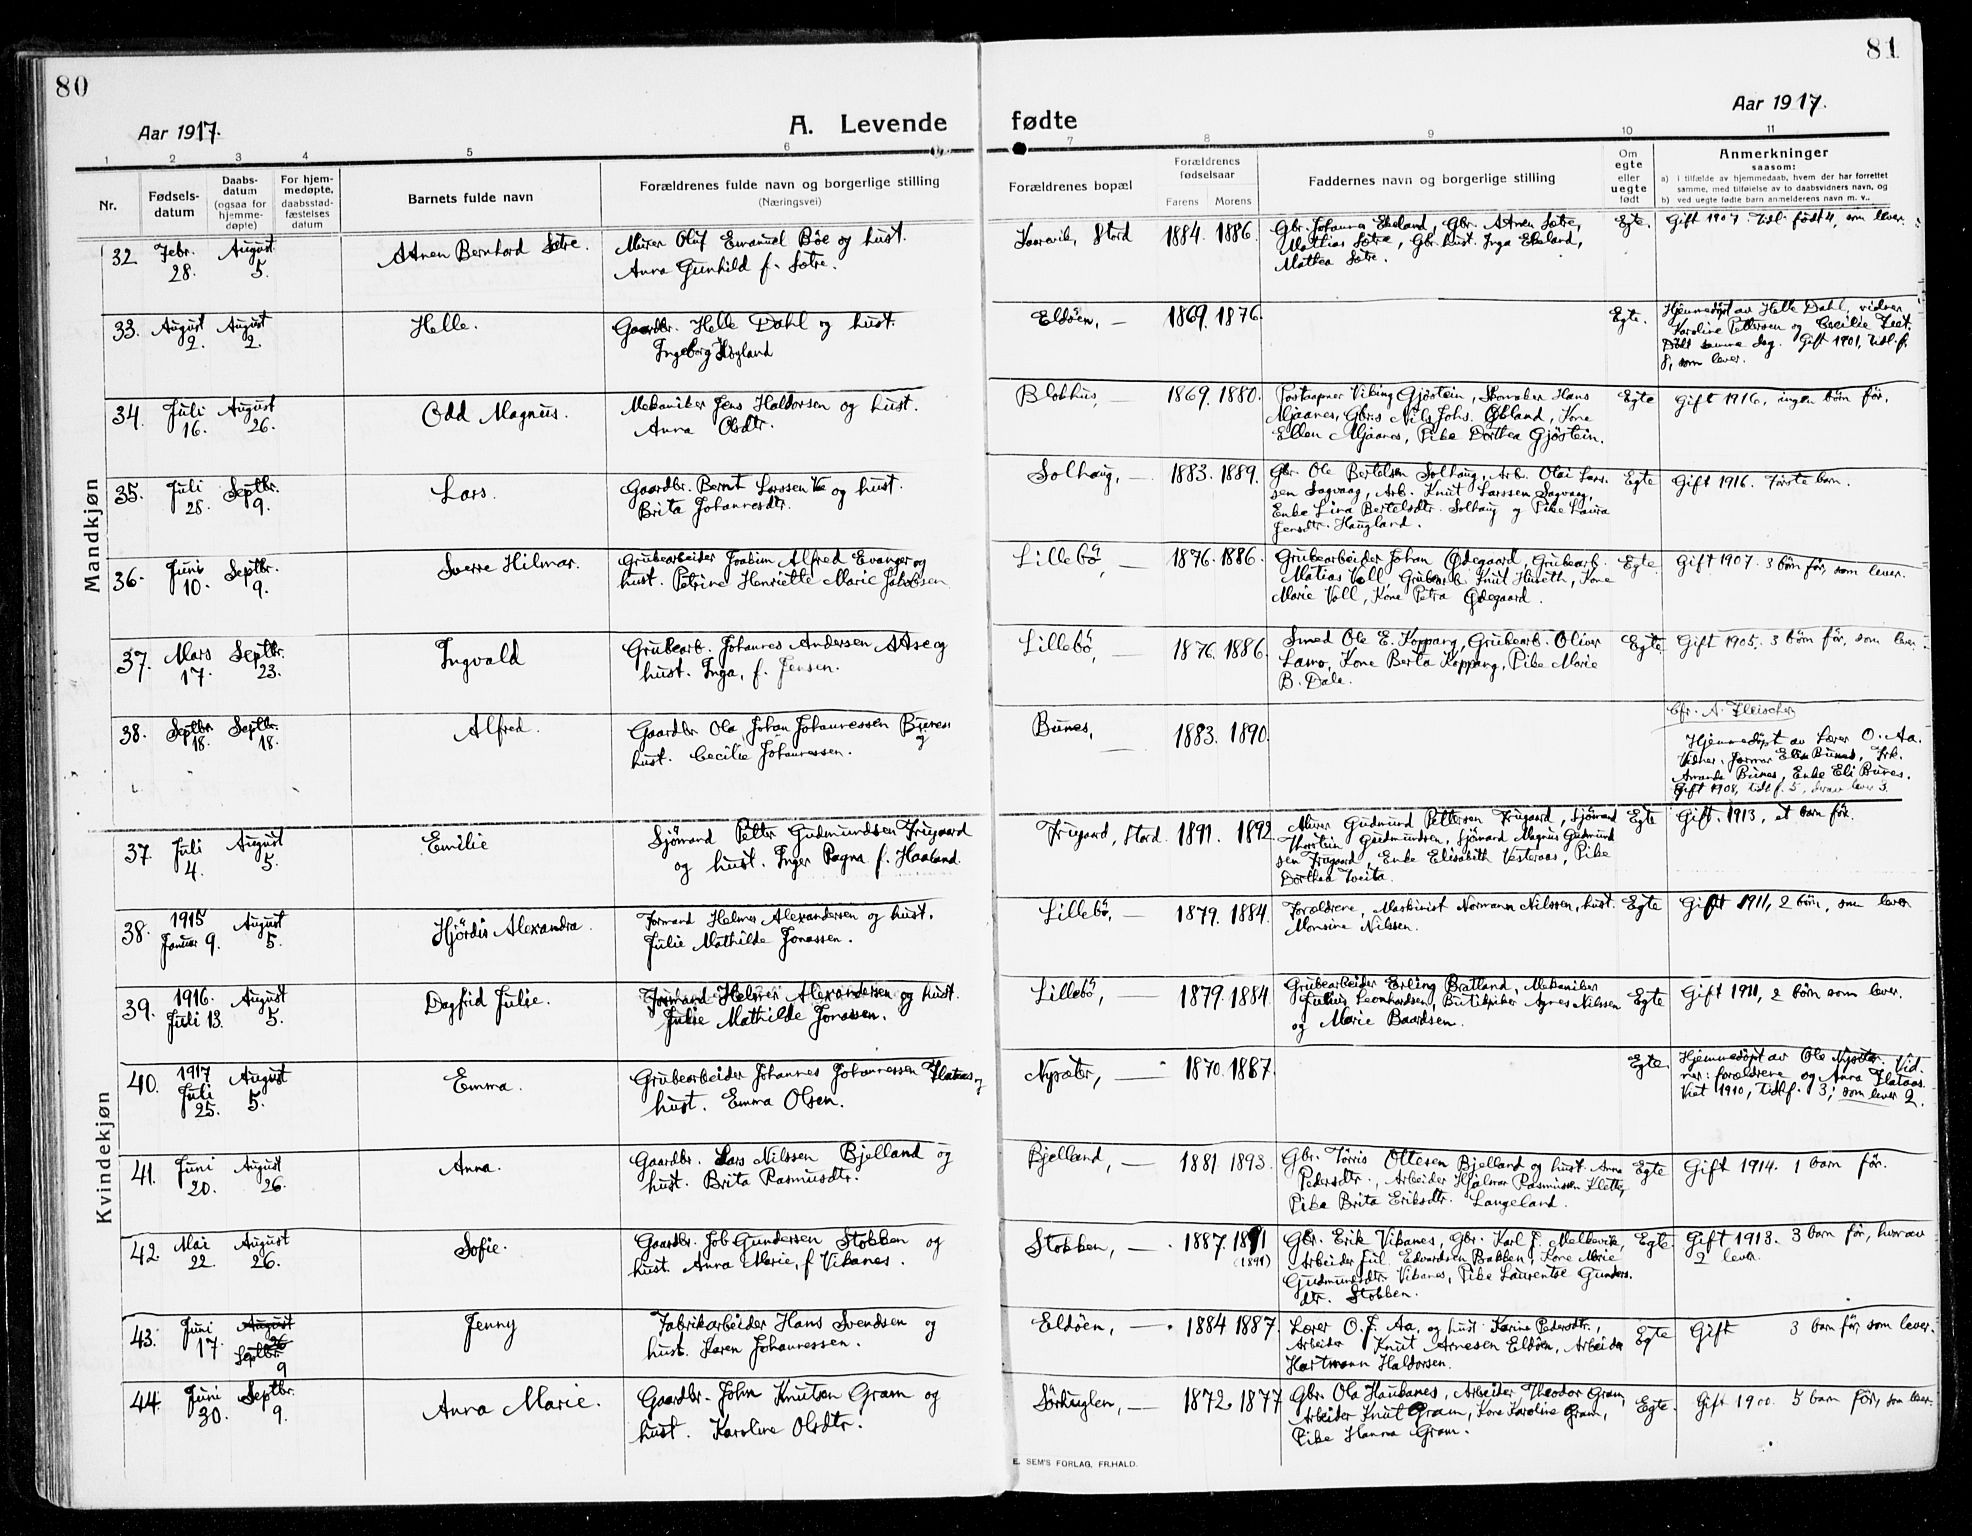 80
Aar 1917.
A. Levende
1 2 3 4 5 6
Nr.
Fødsels-
datum
Daabs-
datum
(ogsaa for
hjemme-
døpte)
For hjem-
medøpte,
daabsstad-
fæstelses
datum
Barnets fulde navn
Forældrenes fulde navn og borgerlige stilling
(Næringsvei)
Mandkjøn
32 Febr. 28. August 5. Bernhard Sætre.
Murer Oluf Emanuel Bøe og hust.
Anna Gunhild f. Sætre.
33. August 2. August 2. Helle.
Gaardbr. Helle Dahl og hust.
Ingeborg Høgland
34. Juli 16. August 26. Odd Magnus.
Mekaniker Jens Haldorsen og hust.
Anna Olsdtr.
35. Juli 28. Septbr. 9. Lars.
Gaardbr. Bernt Larssen og hust.
Brita Johannesdtr.
36. Juni 10. Septbr. 9. Sverre Hilmar.
Grubearbeider Joakim Alfred Evanger og
hust. Petrine Henriette Marie Jakobsen
37. Mars 17. Septbr. 23. Ingvald
Grubearb. Johannes Andersen AAse og
hust. Inga, f. Jensen.
38. Septbr. 18. Septbr. 18. Alfred.
Gaardbr. Ola Johan Johannessen Bunes
og
hust. Cecilie Johannessen.
Kvindekjøn
37 Juli 4. August 5. Emilie
Sjömand Petter Gudmundsen Frugaard
og hust. Inger Ragna f. Haaland.
38. 1915 Januar 9. August 5. Hjördis Alexandra.
Formand Helmer Alexandersen og hust.
Julie Mathilde Jonassen.
39. 1916. Juli 13. August 5. Dagfrid Julie.
Formand Helmer Alexandersen og hust.
Julie Mathilde Jonassen.
40. 1917 Juli 25. August 5. Emma.
Grubearbeider Johannes Johannessen Flataas og
hust. Emma Olsen.
41. Juni 20. August 26. Anna.
Gaardbr. Lars Nilssen Bjelland og
hust. Brita Rasmusdtr.
42. Mai 22. August 26. Sofie.
Gaardbr. Job Gundersen Stokken og
hust. Anna Marie, f Vikanes.
43. Juni 17. August 26 Septbr. 9 Jenny
Fabrikarbeider Hans Svendsen og
hust. Karen Johannessen.
44. Juni 30. Septbr. 9. Anna Marie.
Gaardbr. John Knutsen Gram og
hust. Karoline Olsdtr.
81
Aar 1917.
fødte
7 8 9 10 11
Forældrenes bopæl
Forældrenes
fødselsaar
Farens Morens
Faddernes navn og borgerlige stilling
Om
egte
eller
uegte
født
Anmerkninger
saasom:
a) i tilfælde av hjemmedaab, hvem der har forrettet
samme, med tilføielse av to daabsvidners navn, og
b) ved uegte fødte barn anmelderens navn m. v.,
Stord 1884. 1886. Egte. Gift 1907. Tidl. født 4, som lever.
Gbr. Johannes Ekeland, Gbr. Sætre,
Mathias Sætre, Gbr. hust. Inga Ekeland,
Mathea Sætre.
Eldöen, — 1869. 1876. Egte.
Hjemmedöpt av Helle Dahl, vidner
Karoline Pettersen og Cecilie
Död samme dag. Gift 1901, tidl. f.
8, som lever.
— 1869. 1880. Egte Gift 1916, ingen börn för.
Postaapner Viking Gjöstein, Skomaker Hans
Mjaanes, Nils Johs. Kone
Ellen Mjaanes, Pike Dorthea Gjöstein.
Solhaug, — 1883. 1889. Egte Gift 1916. Förste barn.
Gbr. Ole Bertelsen Solhaug, Arb. Olai Lars-
sen Sagvaag, Arb. Knut Larssen Sagvaag,
Enke Lina Bertelsdtr. Solhaug og Pike Laura
Jensdtr. Haugland.
Lillebö, — 1876. 1886. Egte. Gift 1907. 3 börn för, som lever.
Grubearbeider Johan Ödegaard, Grubearb.
Matias Voll, Grubearb. Knut Huseth, Kone
Marie Voll, Kone Petra Ödegaard.
Lillebö, — 1876. 1886. Egte Gift 1905. 3 börn för, som lever.
Smed Ole E. Koppang, Grubearb. Oliver
Kone Berta Koppang, Pike Marie
B. Dale.
Bunes, — 1883. 1890.
Cfr. A. Fleischer
Hjemmedöpt av Lærer O. Aa.
Vidner. Jormor Elin Bunes, Frk.
Amanda Bunes, Enke Eli Bunes.
Gift 1908, tidl f. 5, hvorav lever 3.
Frugaard, Stord. 1891. 1892 Egte Gift. 1913, et barn för.
Murer Gudmund Pettersen Frugaard, Sjömand
Thorstein Gudmundsen, Sjömand Magnus Gudmund
sen Frugaard, Enke Elisabeth Vesteraas, Pike
Dorthea Tveita.
Lillebö, — 1879. 1884. Egte Gift 1911, 2 börn, som lever
Forældrene, Maskinist Normann Nilssen, hust.
Monsine Nilssen.
Lillebö, — 1879. 1884. Egte Gift 1911, 2 börn som lever.
Grubearbeider Erling Bratland, Mekaniker
Julius Leonhardsen, Butikpike Agnes Nilssen
og Marie Baardsen.
Nysæter, — 1870. 1887. Egte.
Hjemmedöpt av Ole Nysæter. Vid-
ner: forældrene og Anna Flataas.
Viet 1910, tidl f. 3, som lever 2.
Bjelland, — 1881. 1893. Egte Gift 1914. 1 barn för.
Gbr. Torris Ottesen Bjelland og hust. Anna
Pedersdtr., Arbeider Hjalmar Rasmussen Klette,
Pike Brita Eriksdtr. Langeland.
Stokken, — 1887. 1891 (1891) Egte. Gift 1913. 3 barn för, hvorav
2 lever.
Gbr. Erik Vikanes, Gbr. Karl J. Melkevik,
Arbeider Jul. Edvardsen Bakken, Kone Marie
Gudmundsdtr. Vikanes, Pike Laurentse Gunders.
dtr. Stokken.
Eldöen, — 1884 1887. Egte Gift 3 barn för som lever.
Lærer O. J. Aa. og hust. Karine Pedersdtr.,
Arbeider Knut Arnesen Eldöen, Arbeider
Hartmann Haldorsen.
Sörhuglen, — 1872. 1877 Egte. Gift 1900. 5 barn för, som lever.
Gbr. Ola Haukanes, Arbeider Theodor Gram,
Arbeider Knut Gram, Kone Karoline Gram,
Pike Hanna Gram.
E. SEM'S FORLAG, FR.HALD.